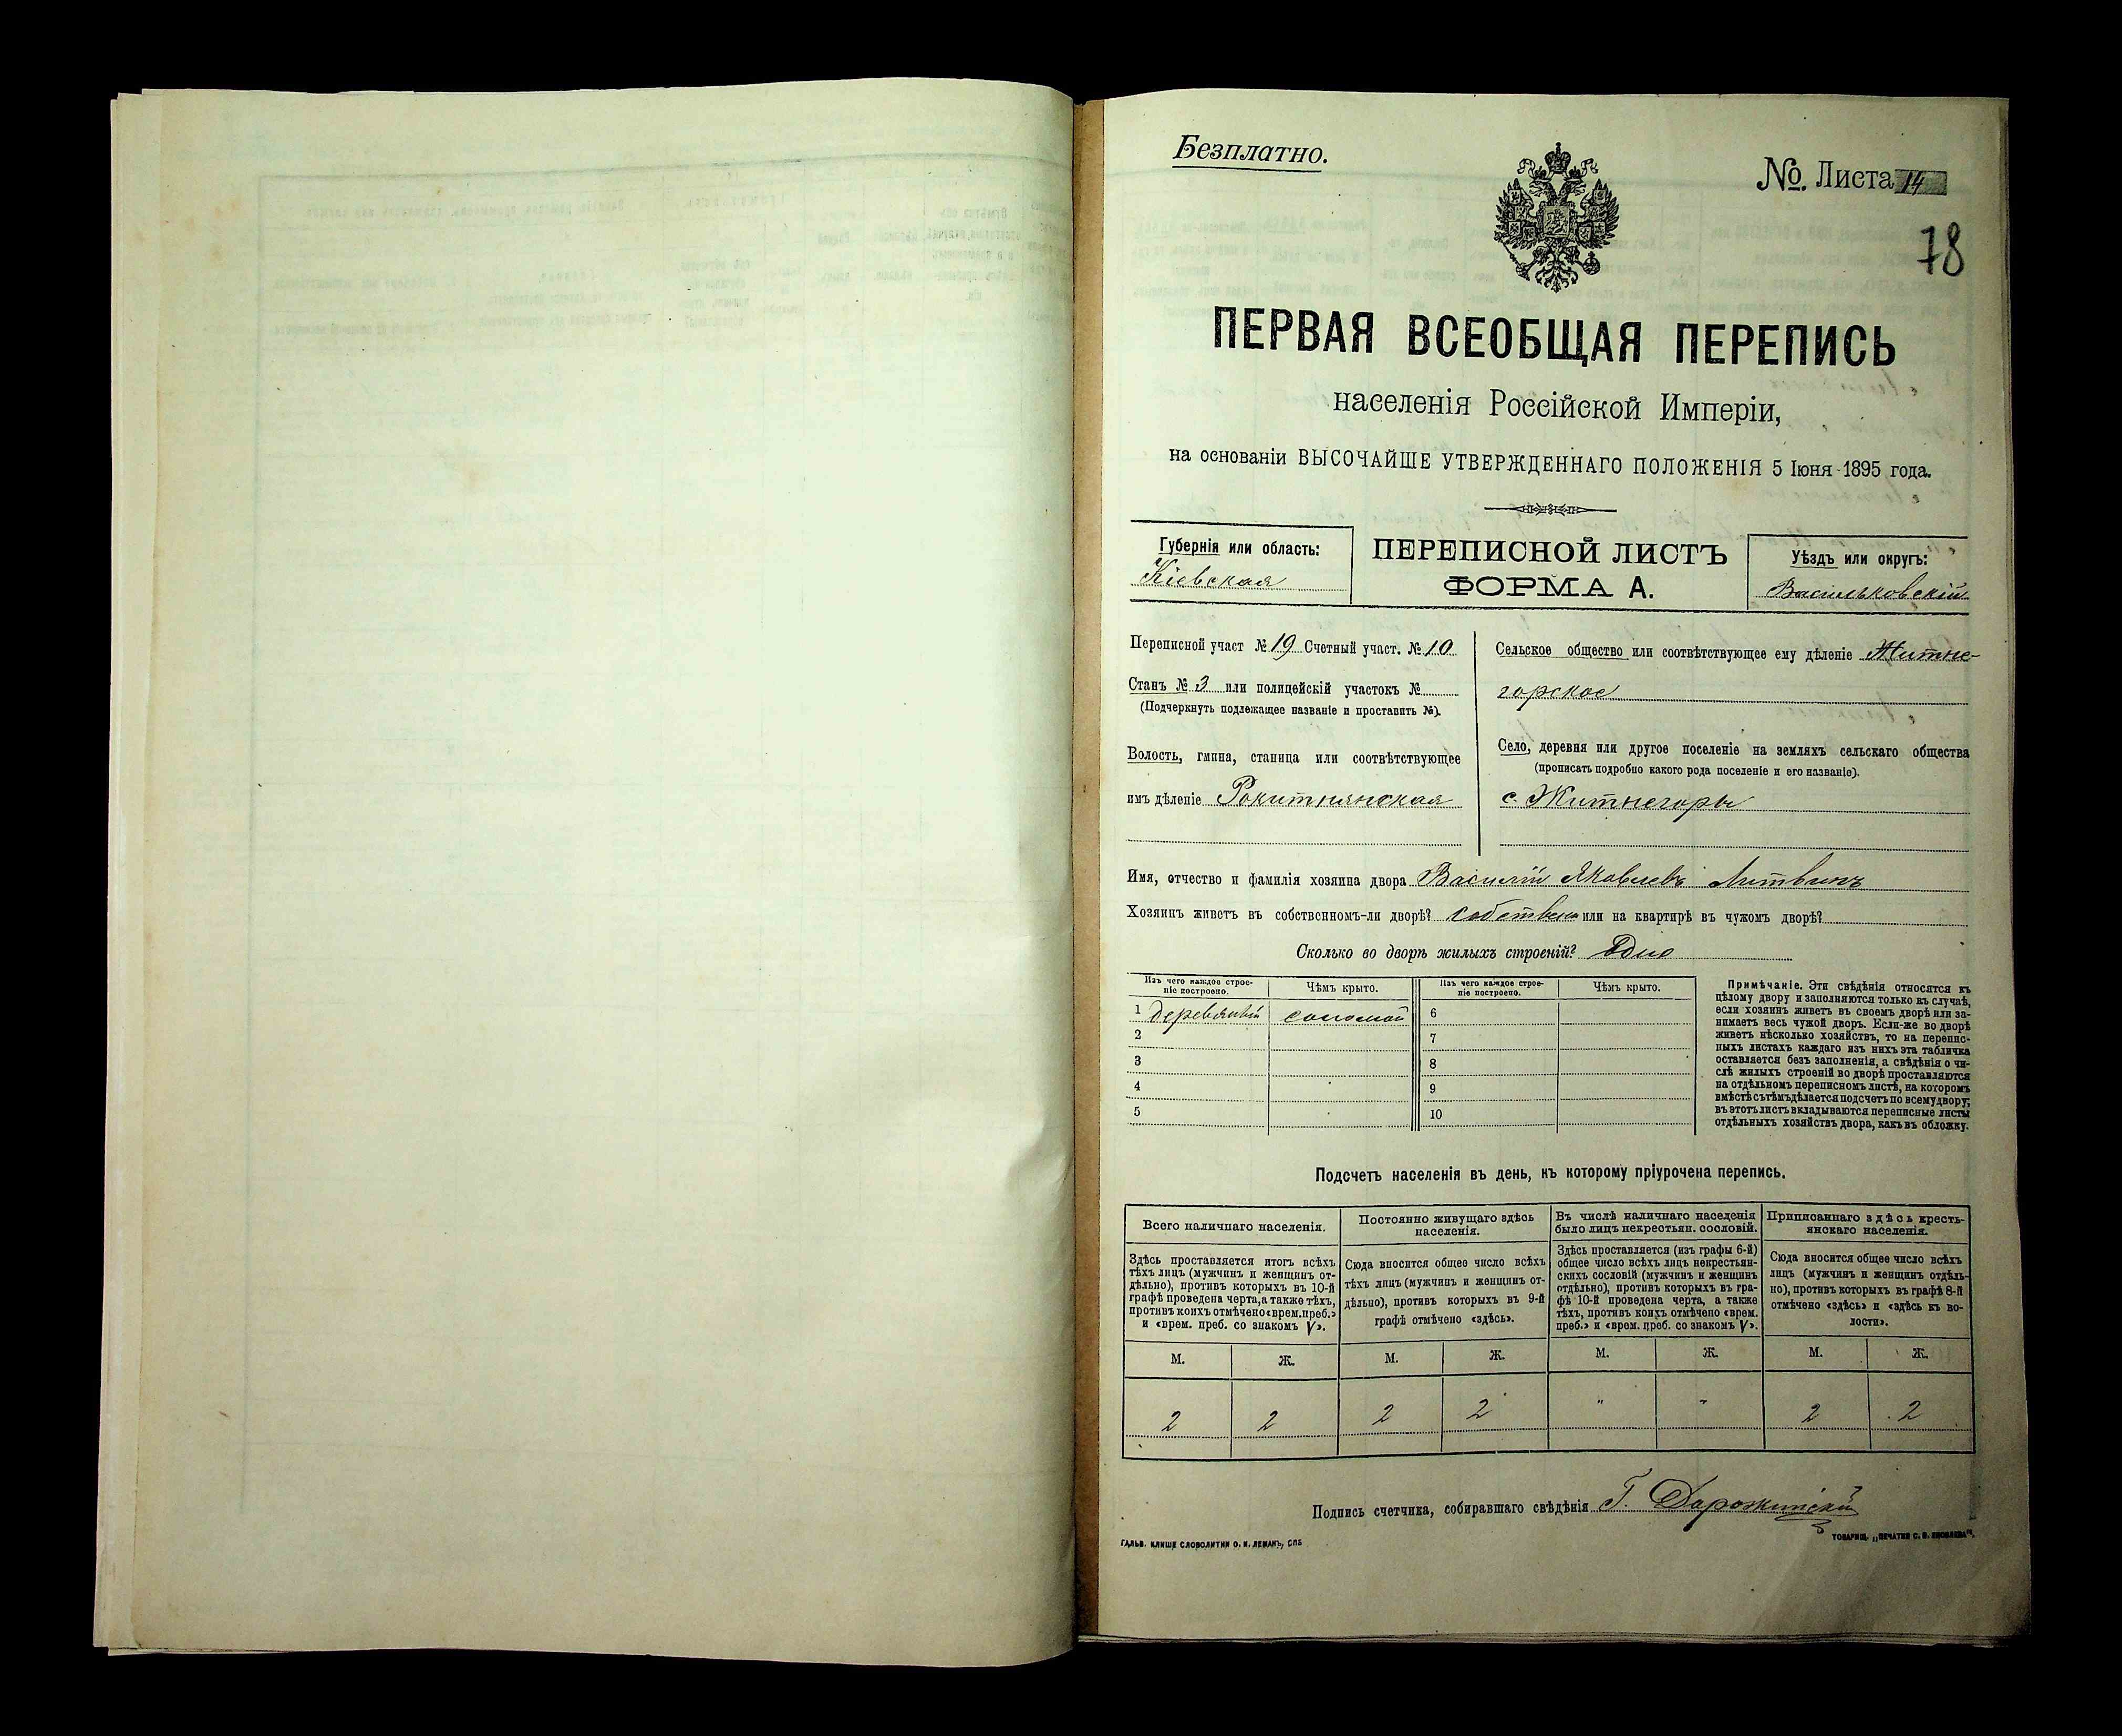 Безплатно.
№. Листа 14
78
ПЕРВАЯ ВСЕОБЩАЯ ПЕРЕПИСЬ
населенія Россійской Имперіи,
на основаніи ВЫСОЧАЙШЕ УТВЕРЖДЕННАГО ПОЛОЖЕНІЯ 5 Іюня 1895 года.
Губернія или область:
Кіевская
ПЕРЕПИСНОЙ ЛИСТЪ
ФОРМА А.
Уѣздъ или округъ:
Васильковскій
Переписной участ № 19 Счетный участ. № 10
Станъ № 3 или полицейскій участокъ №
(Подчеркнуть подлежащее названіе и проставить №).
Волость, гмина, станица или соотвѣтствующее
имъ дѣленіе Рокитнянская
Сельское общество или соотвѣтствующее ему дѣленіе Житне-
горское
Село, деревня или другое поселеніе на земляхъ сельскаго общества
(прописать подробно какого рода поселеніе и его названіе).
с. Житнегоры
Имя, отчество и фамилія хозяина двора Василій Яковлевъ Литвинъ
Хозяинъ живетъ въ собственномъ-ли дворѣ? собствен или на квартирѣ въ чужомъ дворѣ?
Сколько во дворѣ жилыхъ строеній? Одно
Изъ чего каждое строе-
ніе построено.
Чѣмъ крыто.
Изъ чего каждое строе-
ніе построено.
Чѣмъ крыто.
1 деревяный соломой 6
2 7
3 8
4 9
5 10
Примѣчаніе. Эти свѣдѣнія относятся къ
цѣлому двору и заполняются только въ случаѣ,
если хозяинъ живетъ въ своемъ дворѣ или за-
нимаетъ весь чужой дворъ. Если-же во дворѣ
живетъ нѣсколько хозяйствъ, то на перепис-
ныхъ листахъ каждаго изъ нихъ эта табличка
оставляется безъ заполненія, а свѣдѣнія о чи-
слѣ жилыхъ строеній во дворѣ проставляются
на отдѣльномъ переписномъ листѣ, на которомъ
вмѣстѣ съ тѣмъ дѣлается подсчетъ по всему двору;
въ этотъ листъ вкладываются переписные листы
отдѣльныхъ хозяйствъ двора, какъ въ обложку.
Подсчетъ населенія въ день, къ которому пріурочена перепись.
Всего наличнаго населенія.
Здѣсь проставляется итогъ всѣхъ
тѣхъ лицъ (мужчинъ и женщинъ от-
дѣльно), противъ которыхъ въ 10-й
графѣ проведена черта, а также тѣхъ,
противъ коихъ отмѣчено «врем. преб.»
и «врем. преб. со знакомъ V».
Постоянно живущаго здѣсь
населенія.
Сюда вносится общее число всѣхъ
тѣхъ лицъ (мужчинъ и женщинъ от-
дѣльно), противъ которыхъ въ 9-й
графѣ отмѣчено «здѣсь».
Въ числѣ наличнаго населенія
было лицъ некрестьян. сословій.
Здѣсь проставляется (изъ графы 6-й)
общее число всѣхъ лицъ некрестьян-
скихъ сословій (мужчинъ и женщинъ
отдѣльно), противъ которыхъ въ гра-
фѣ 10-й проведена черта, а также
тѣхъ, противъ коихъ отмѣчено «врем.
преб.» и «врем. преб. со знакомъ V».
Приписаннаго здѣсь кресть-
янскаго населенія.
Сюда вносится общее число всѣхъ
лицъ (мужчинъ и женщинъ отдѣль-
но), противъ которыхъ въ графѣ 8-й
отмѣчено «здѣсь» и «здѣсь къ во-
лости».
М. Ж. М. Ж. М. Ж. М. Ж.
2 2 2 2 " " 2 2
Подпись счетчика, собиравшаго свѣдѣнія Г.
ГАЛЬВ. КЛИШЕ СЛОВОЛИТНИ О. И. ЛЕМАНЪ, СПБ
ТОВАРИЩ. „ПЕЧАТНЯ С. П. ЯКОВЛЕВА“.